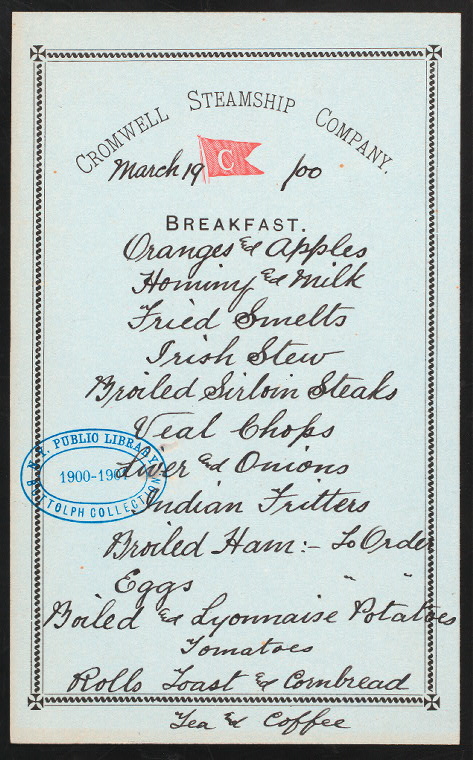 CROMWELL STEAMSHIP COMPANY.
March 19 C /00
BREAKFAST.
Oranges & Apples
Hominy & Milk
Fried Smelts
Irish Stew
Broiled Sirloin Steaks
Veal Chops
Liver & Onions
Indian Fritters
Broiled Ham:- To Order
Eggs " "
Boiled & Lyonnaise Potatoes
Tomatoes
Rolls Toast & Cornbread
Tea & Coffee
N.Y. PUBLIC LIBRARY
1900-190
COLLECT